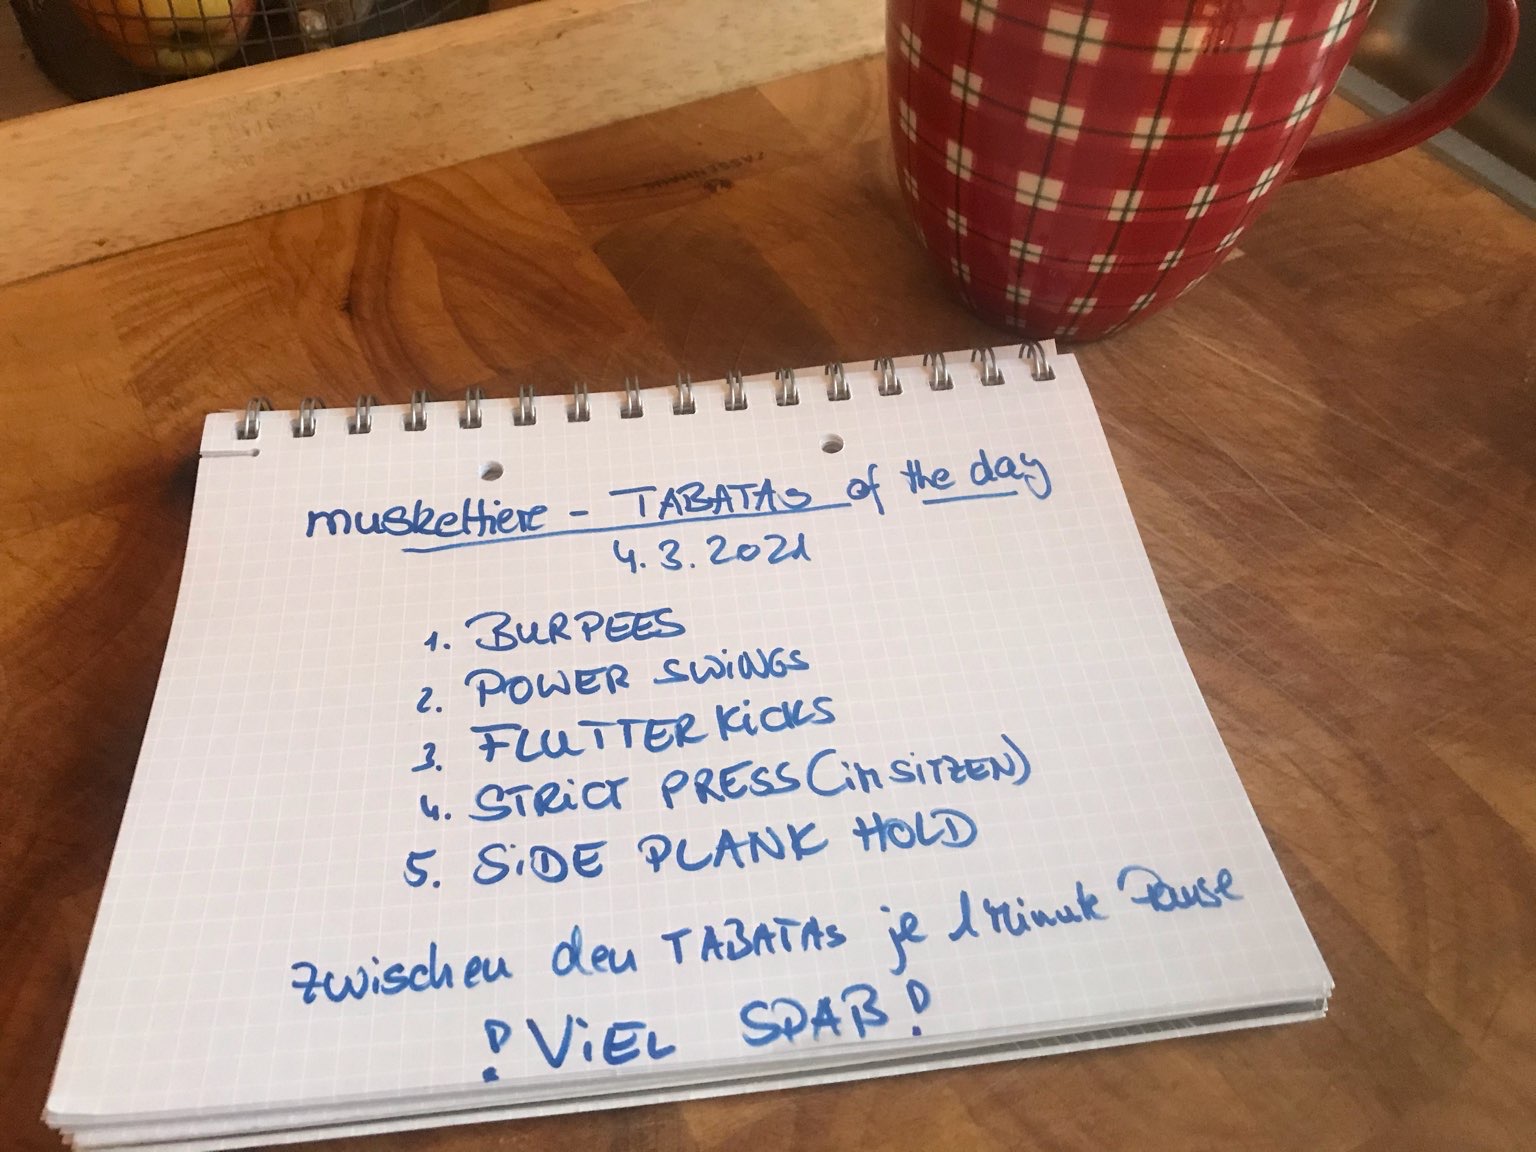 ZASSENHAUS
muskettiere - TABATAs of the day
4.3.2021
1. BURPEES
2. POWER SWINGS
3. FLUTTER KICKS
4. STRICT PRESS (im SITZEN)
5. SIDE PLANK HOLD
zwischen den TABATAs je 1 Minute Pause
! VIEL SPAß !